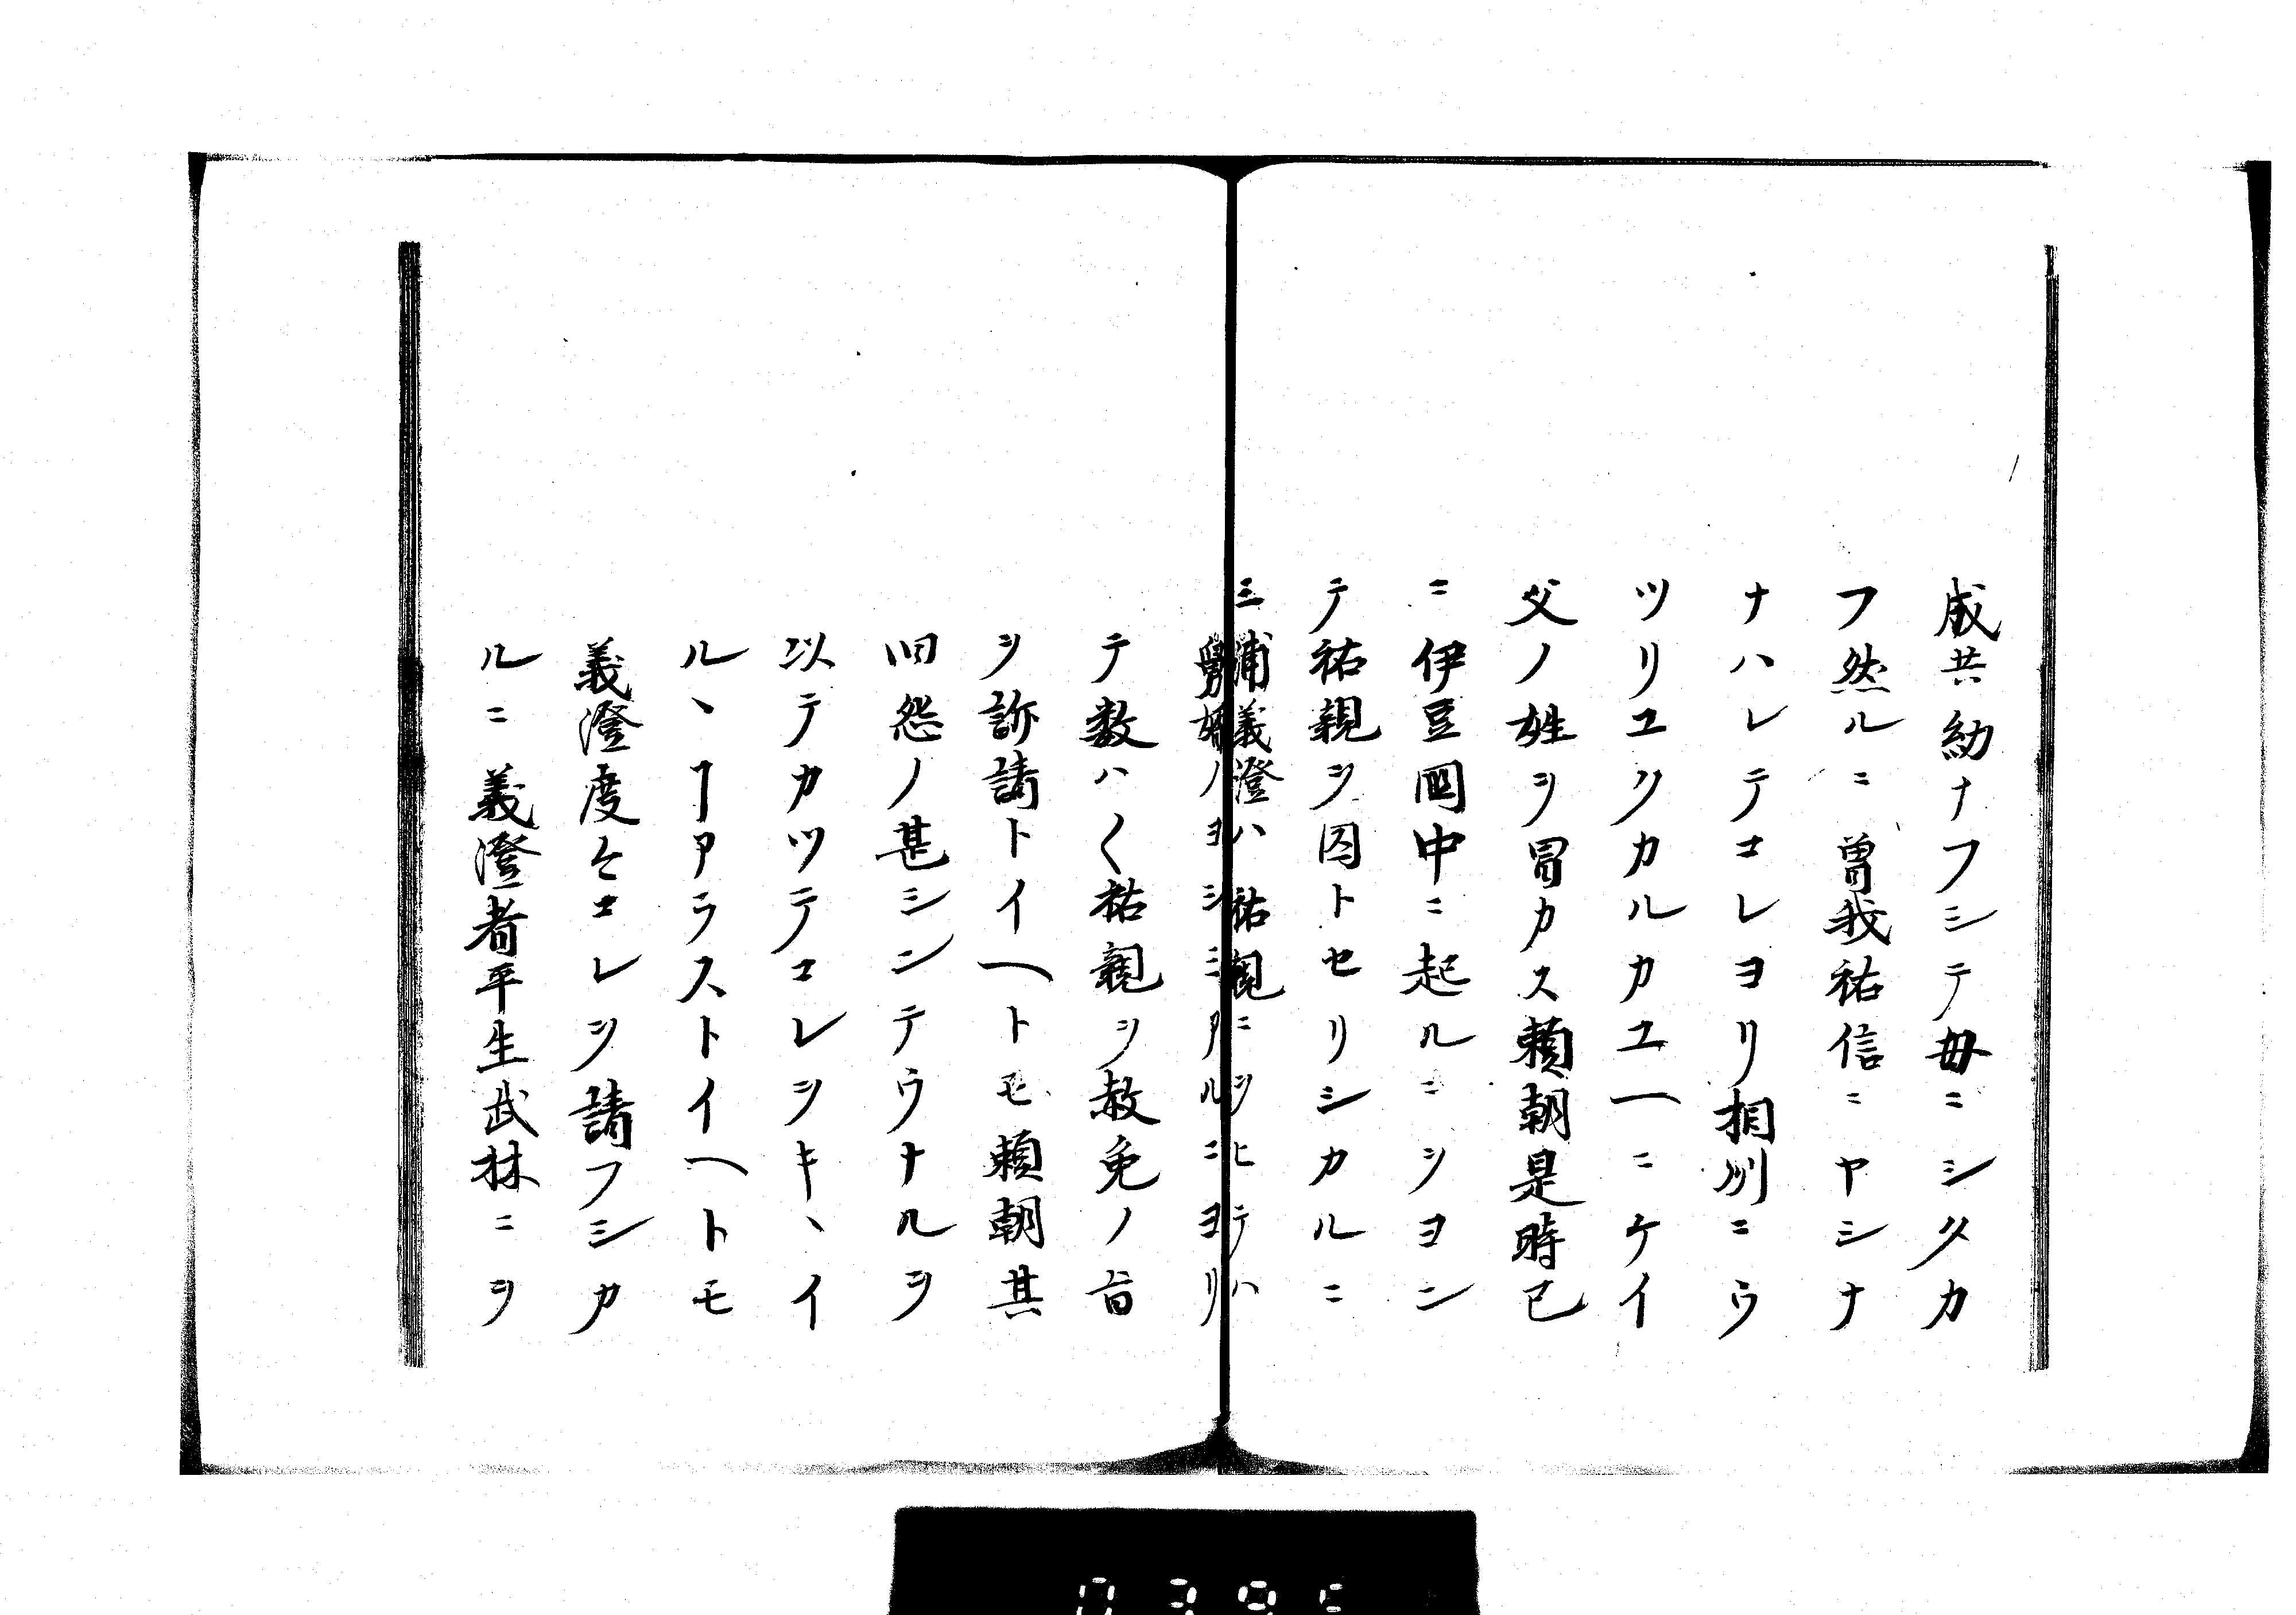 成共幼ナフシテ母ニシタカ
フ然ルニ曽我祐信ニヤシナ
ナハレテコレヨリ相州ニウ
ツリユクカルカユヘニケイ
父ノ姓ヲ冒カス頼朝是時已
ニ伊豆國中ニ起ルニヲヨン
テ祐親ヲ囚トセリシカルニ
三浦義澄ハ祐親ニヲヒテハ
舅婿ノヨシミアルニヨリ
テ数ハ〱祐親ヲ赦免ノ旨
ヲ訴請トイヘトモ頼朝其
旧怨ノ甚シンテウナルヲ
以テカツテコレヲキヽイ
ルヽヿアラストイヘトモ
義澄度々コレヲ請フシカ
ルニ義澄者平生武林ニヲ